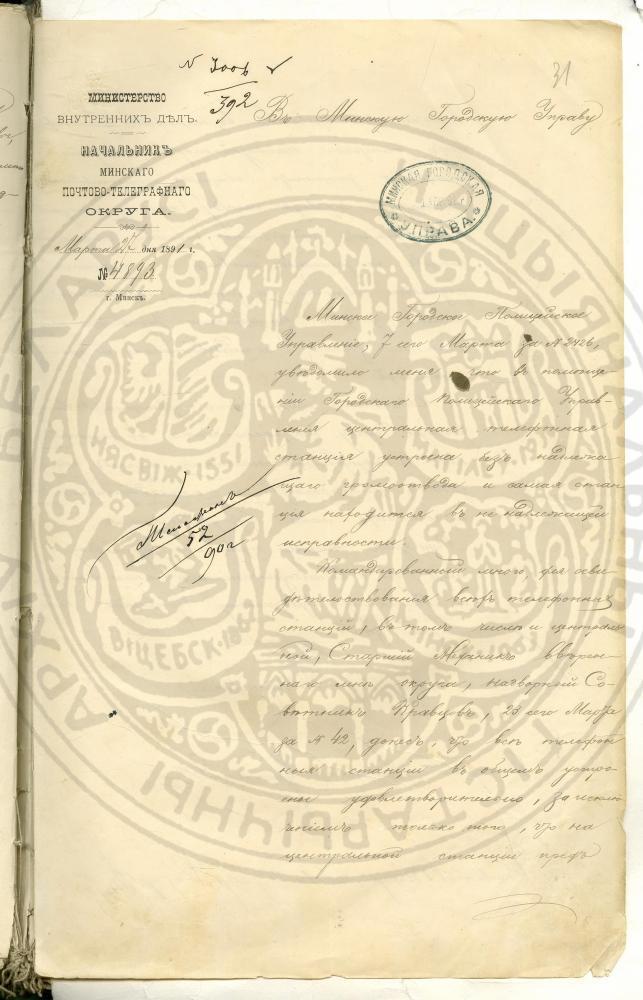 31
392
МИНИСТЕРСТВО
ВНУТРЕННИХЪ ДѢЛЪ.
НАЧАЛЬНИКЪ
МИНСКАГО
ПОЧТОВО-ТЕЛЕГРАФНАГО
ОКРУГА.
Марта 27 дня 1891 г.
№ 4893
г. Минскъ.
Въ Минскую Городскую Управу
МИНСКАЯ ГОРОДСКАЯ
УПРАВА
Минское Городское Полицейское
Управленіе, 7 сего Марта за № 2426,
увѣдомило меня что въ помѣще-
ніи Городскаго Полицейскаго Управ-
ленія центральная телефонная
станція устроена безъ надлежа
щаго громоотвода и самая стан
ція находится въ не надлежащей
исправности.
Телефонъ
52
90 г
Командированный мною, для осви
дѣтельствованія всѣхъ телефонныхъ
станцій, въ томъ числѣ и централь
ной, Старшій Механикъ ввѣрен-
наго мнѣ округа, надворный Со-
вѣтникъ Кравцовъ, 23 сего Марта
за № 42, донесъ, что всѣ телефон
ныя станціи въ общемъ устрое
ны удовлетворительно, за исклю
ченіемъ только того, что на
центральной станціи предъ
НЯСВІЖ·1551
ВІЦЕБСК·1862